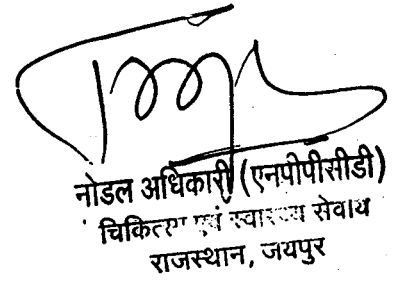 नोडल अधिकारी (एनपीपीसीडी)
चिकित्सा एवं स्वास्थ्य सेवाय
राजस्थान, जयपुर